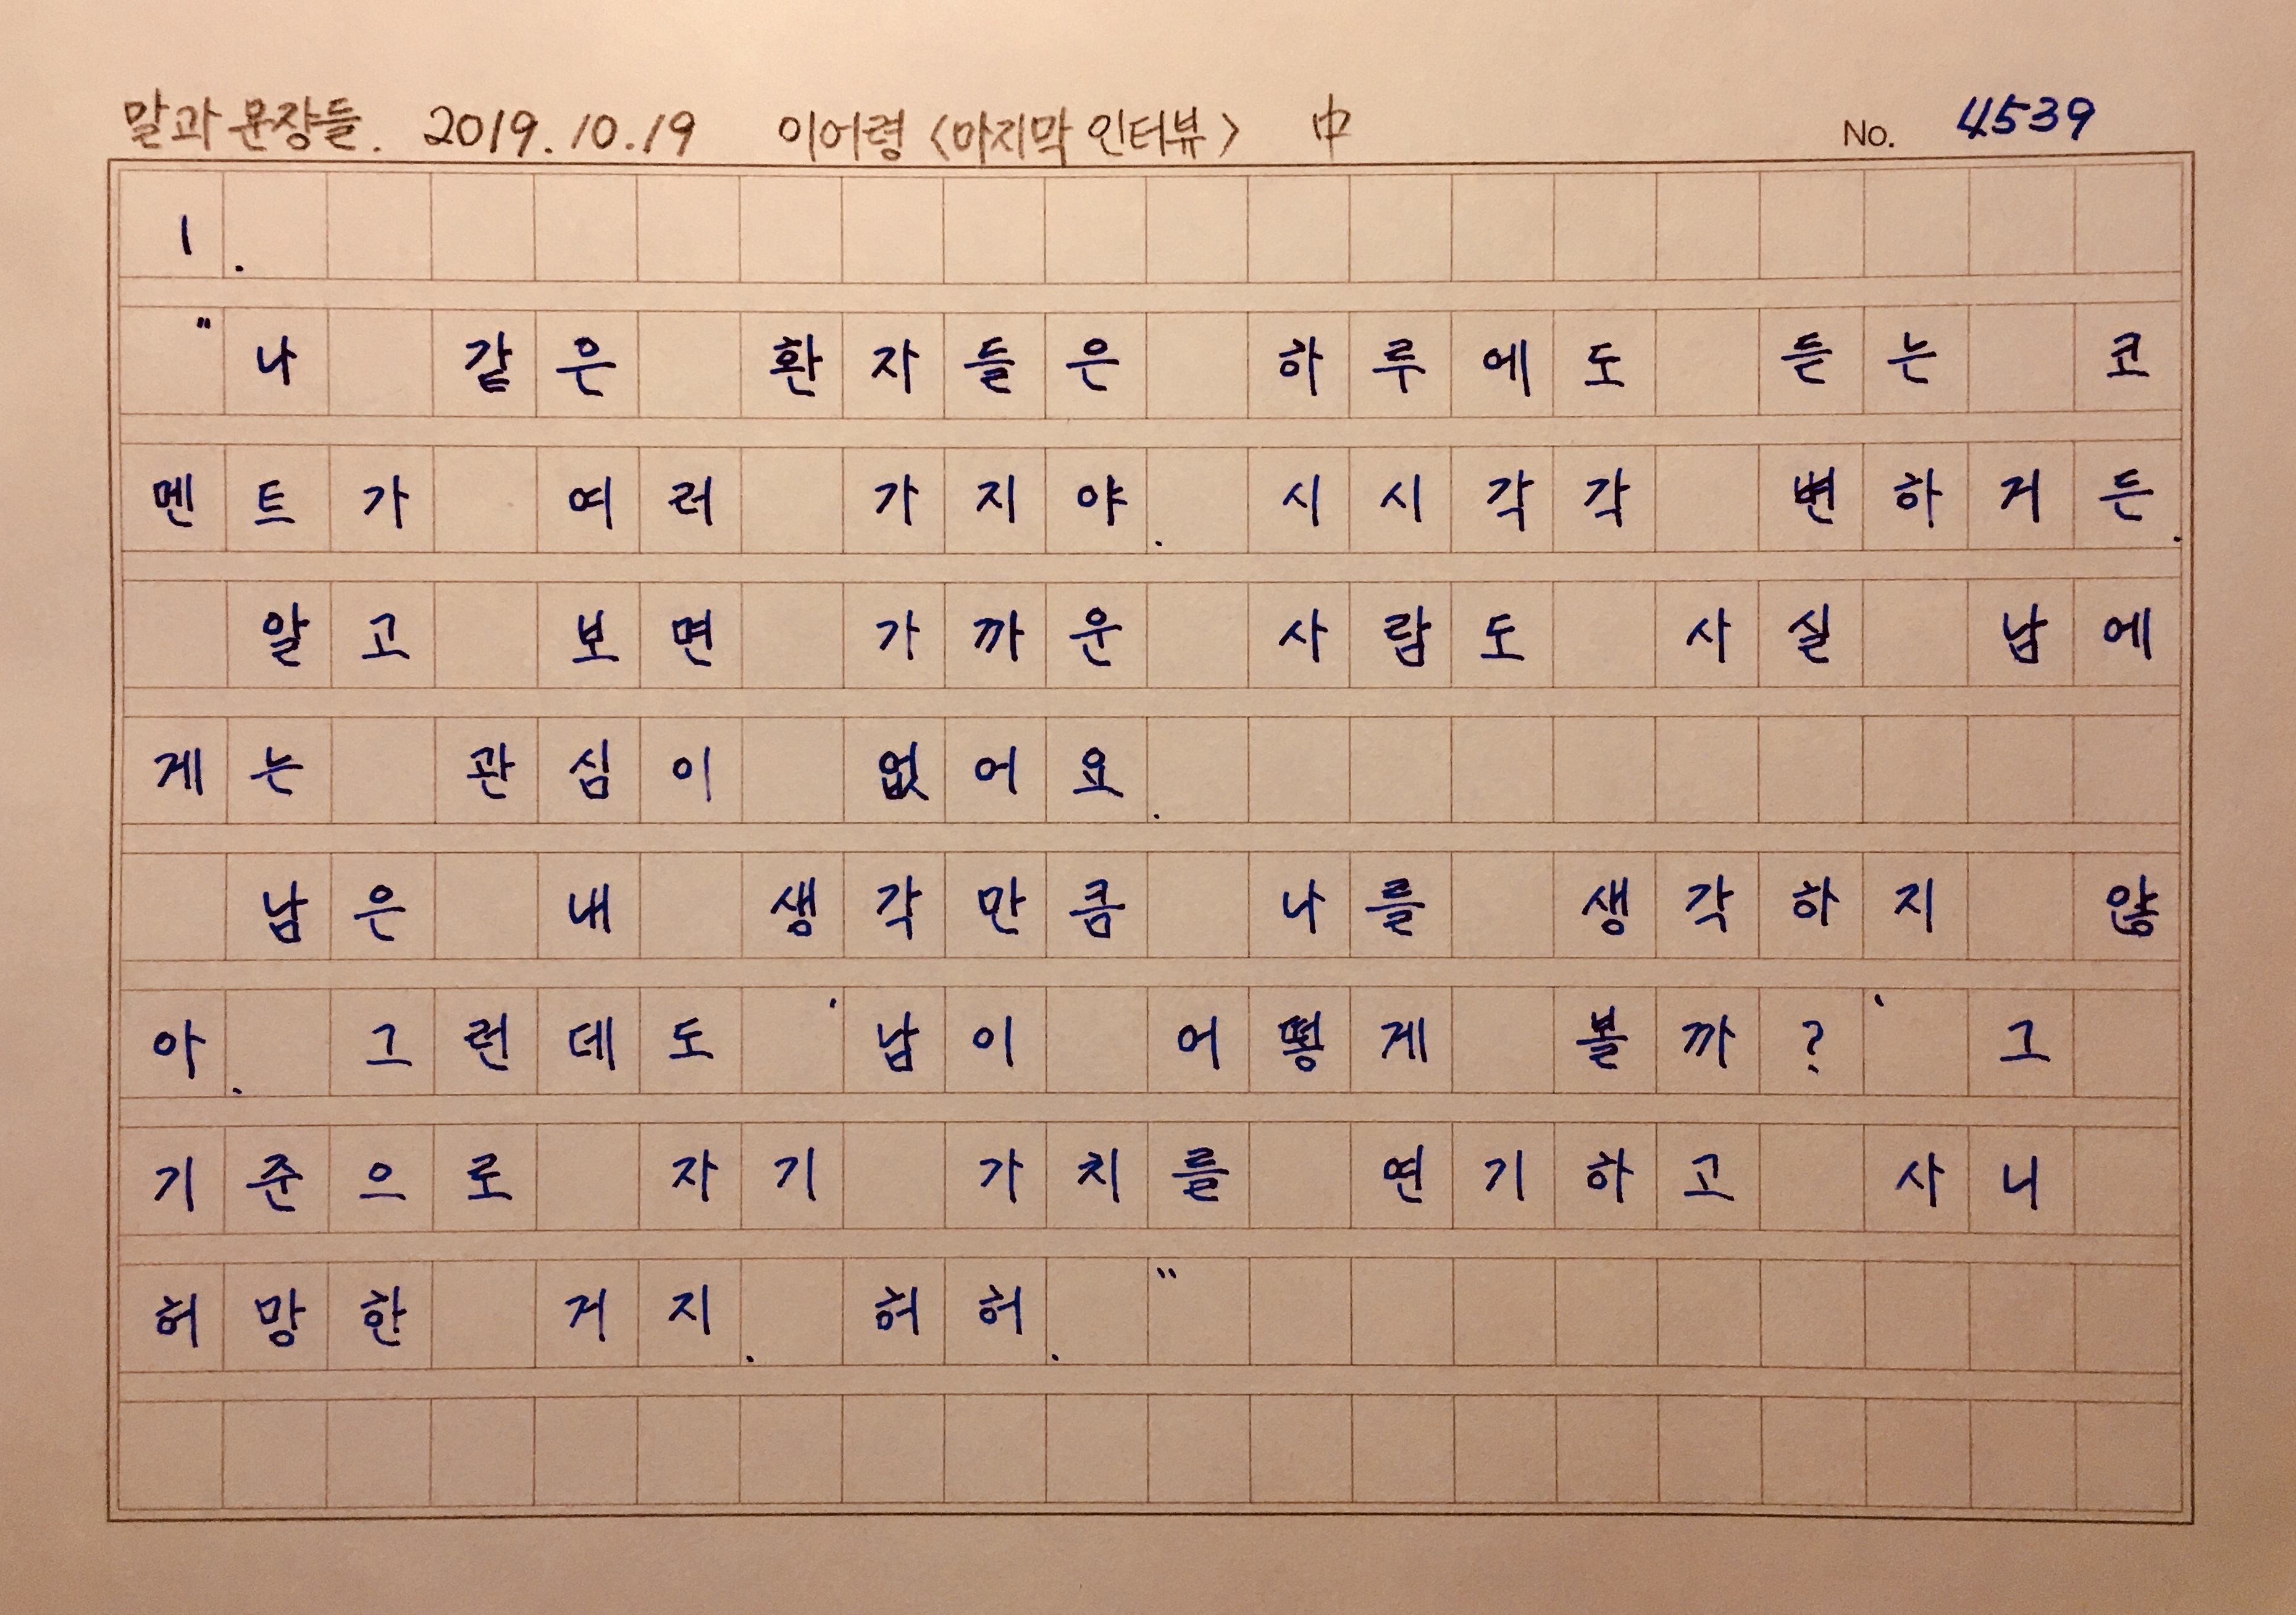 말과 문장들. 2019.10.19 이어령 <마지막 인터뷰> 中 No. 4539
1.
"나 같은 환자들은 하루에도 듣는 코
멘트가 여러 가지야. 시시각각 변하거든.
알고 보면 가까운 사람도 사실 남에
게는 관심이 없어요.
남은 내 생각만큼 나를 생각하지 않
아. 그런데도 '남이 어떻게 볼까?' 그
기준으로 자기 가치를 연기하고 사니
허망한 거지. 허허."